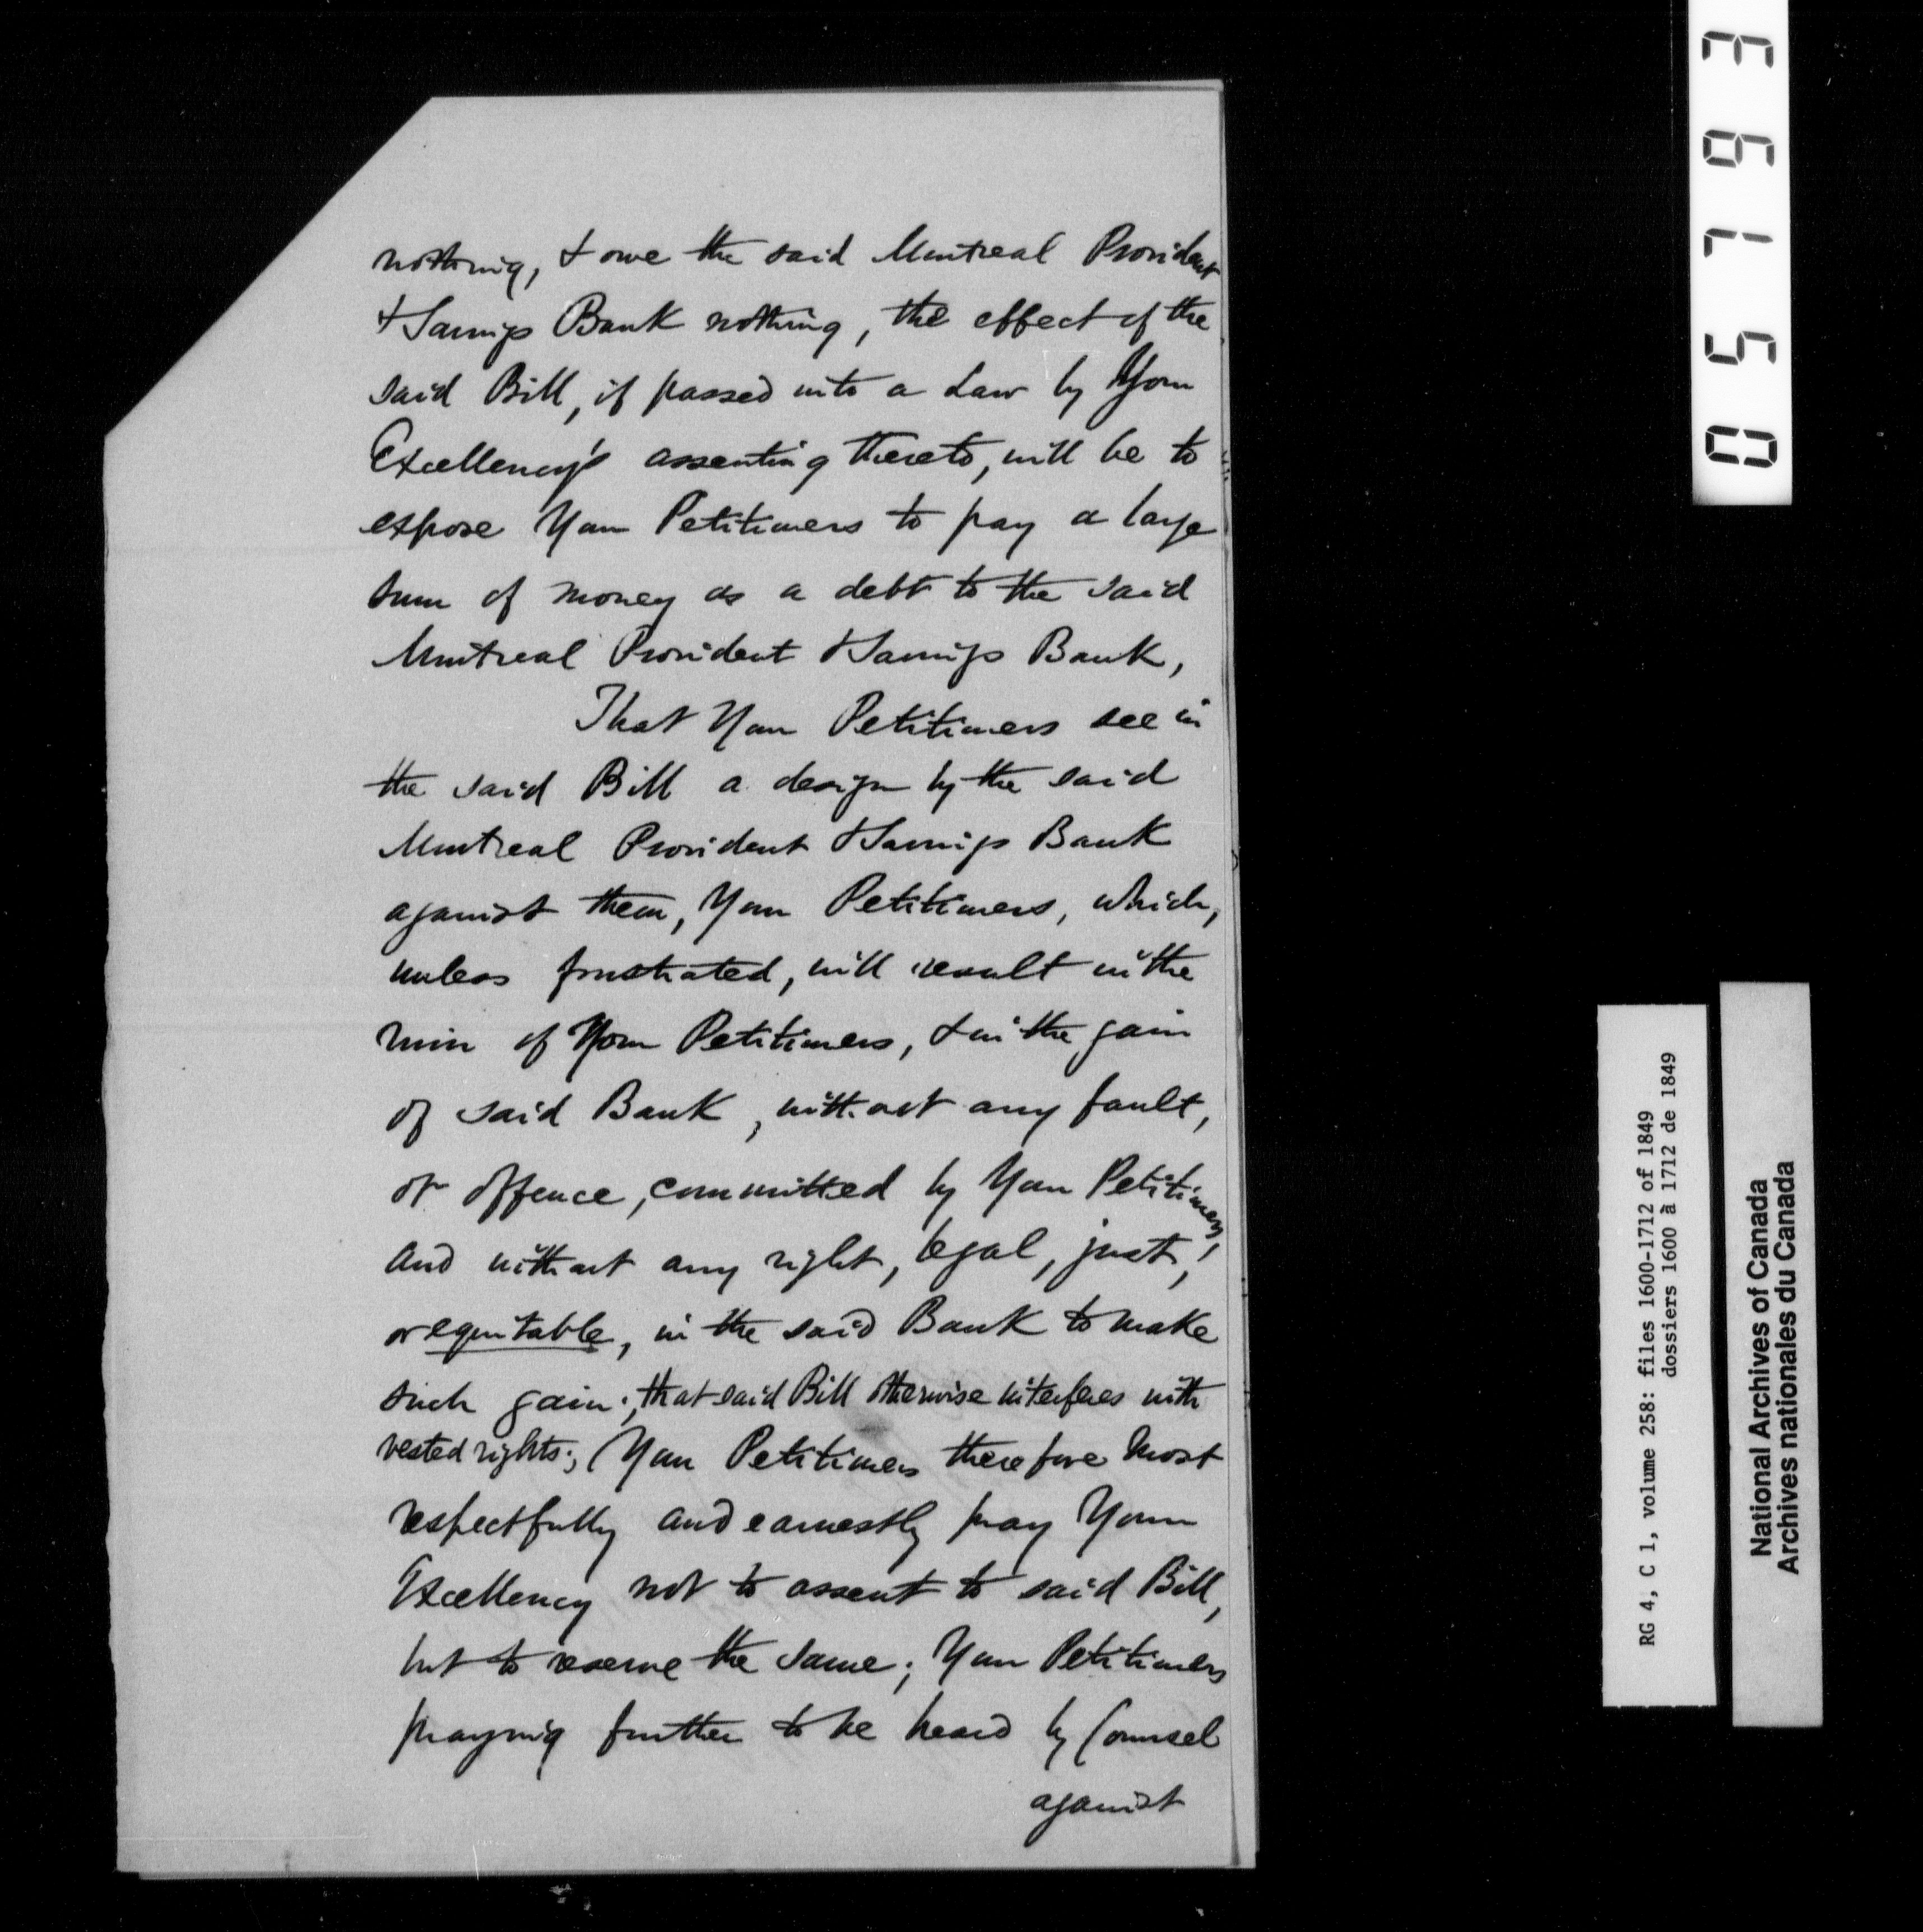 nothing, & owe the said Montreal Provident
& Savings Bank nothing, the effect of the
said Bill, if passed into a Law by Your
Excellency's assenting thereto, will be to
expose Your Petitioners to pay a large
sum of money as a debt to the said
Montreal Provident & Savings Bank,
That Your Petitioners see in
the said Bill a design by the said
Montreal Provident & Savings Bank
against them, Your Petitioners, which,
unless frustrated, will result in the
ruin of Your Petitioners, & in the gain
of said Bank, without any fault,
or offence, committed by Your Petitioners,
and without any right, legal, just,
or equitable, in the said Bank to make
such gain; that said Bill otherwise interferes with
vested rights; Your Petitioners therefore most
respectfully and earnestly pray Your
Excellency not to assent to said Bill,
but to reserve the same; Your Petitioners
praying further to be heard by Counsel
against
05793
RG 4, C 1, volume 258: files 1600-1712 of 1849
dossiers 1600 à 1712 de 1849
National Archives of Canada
Archives nationales du Canada